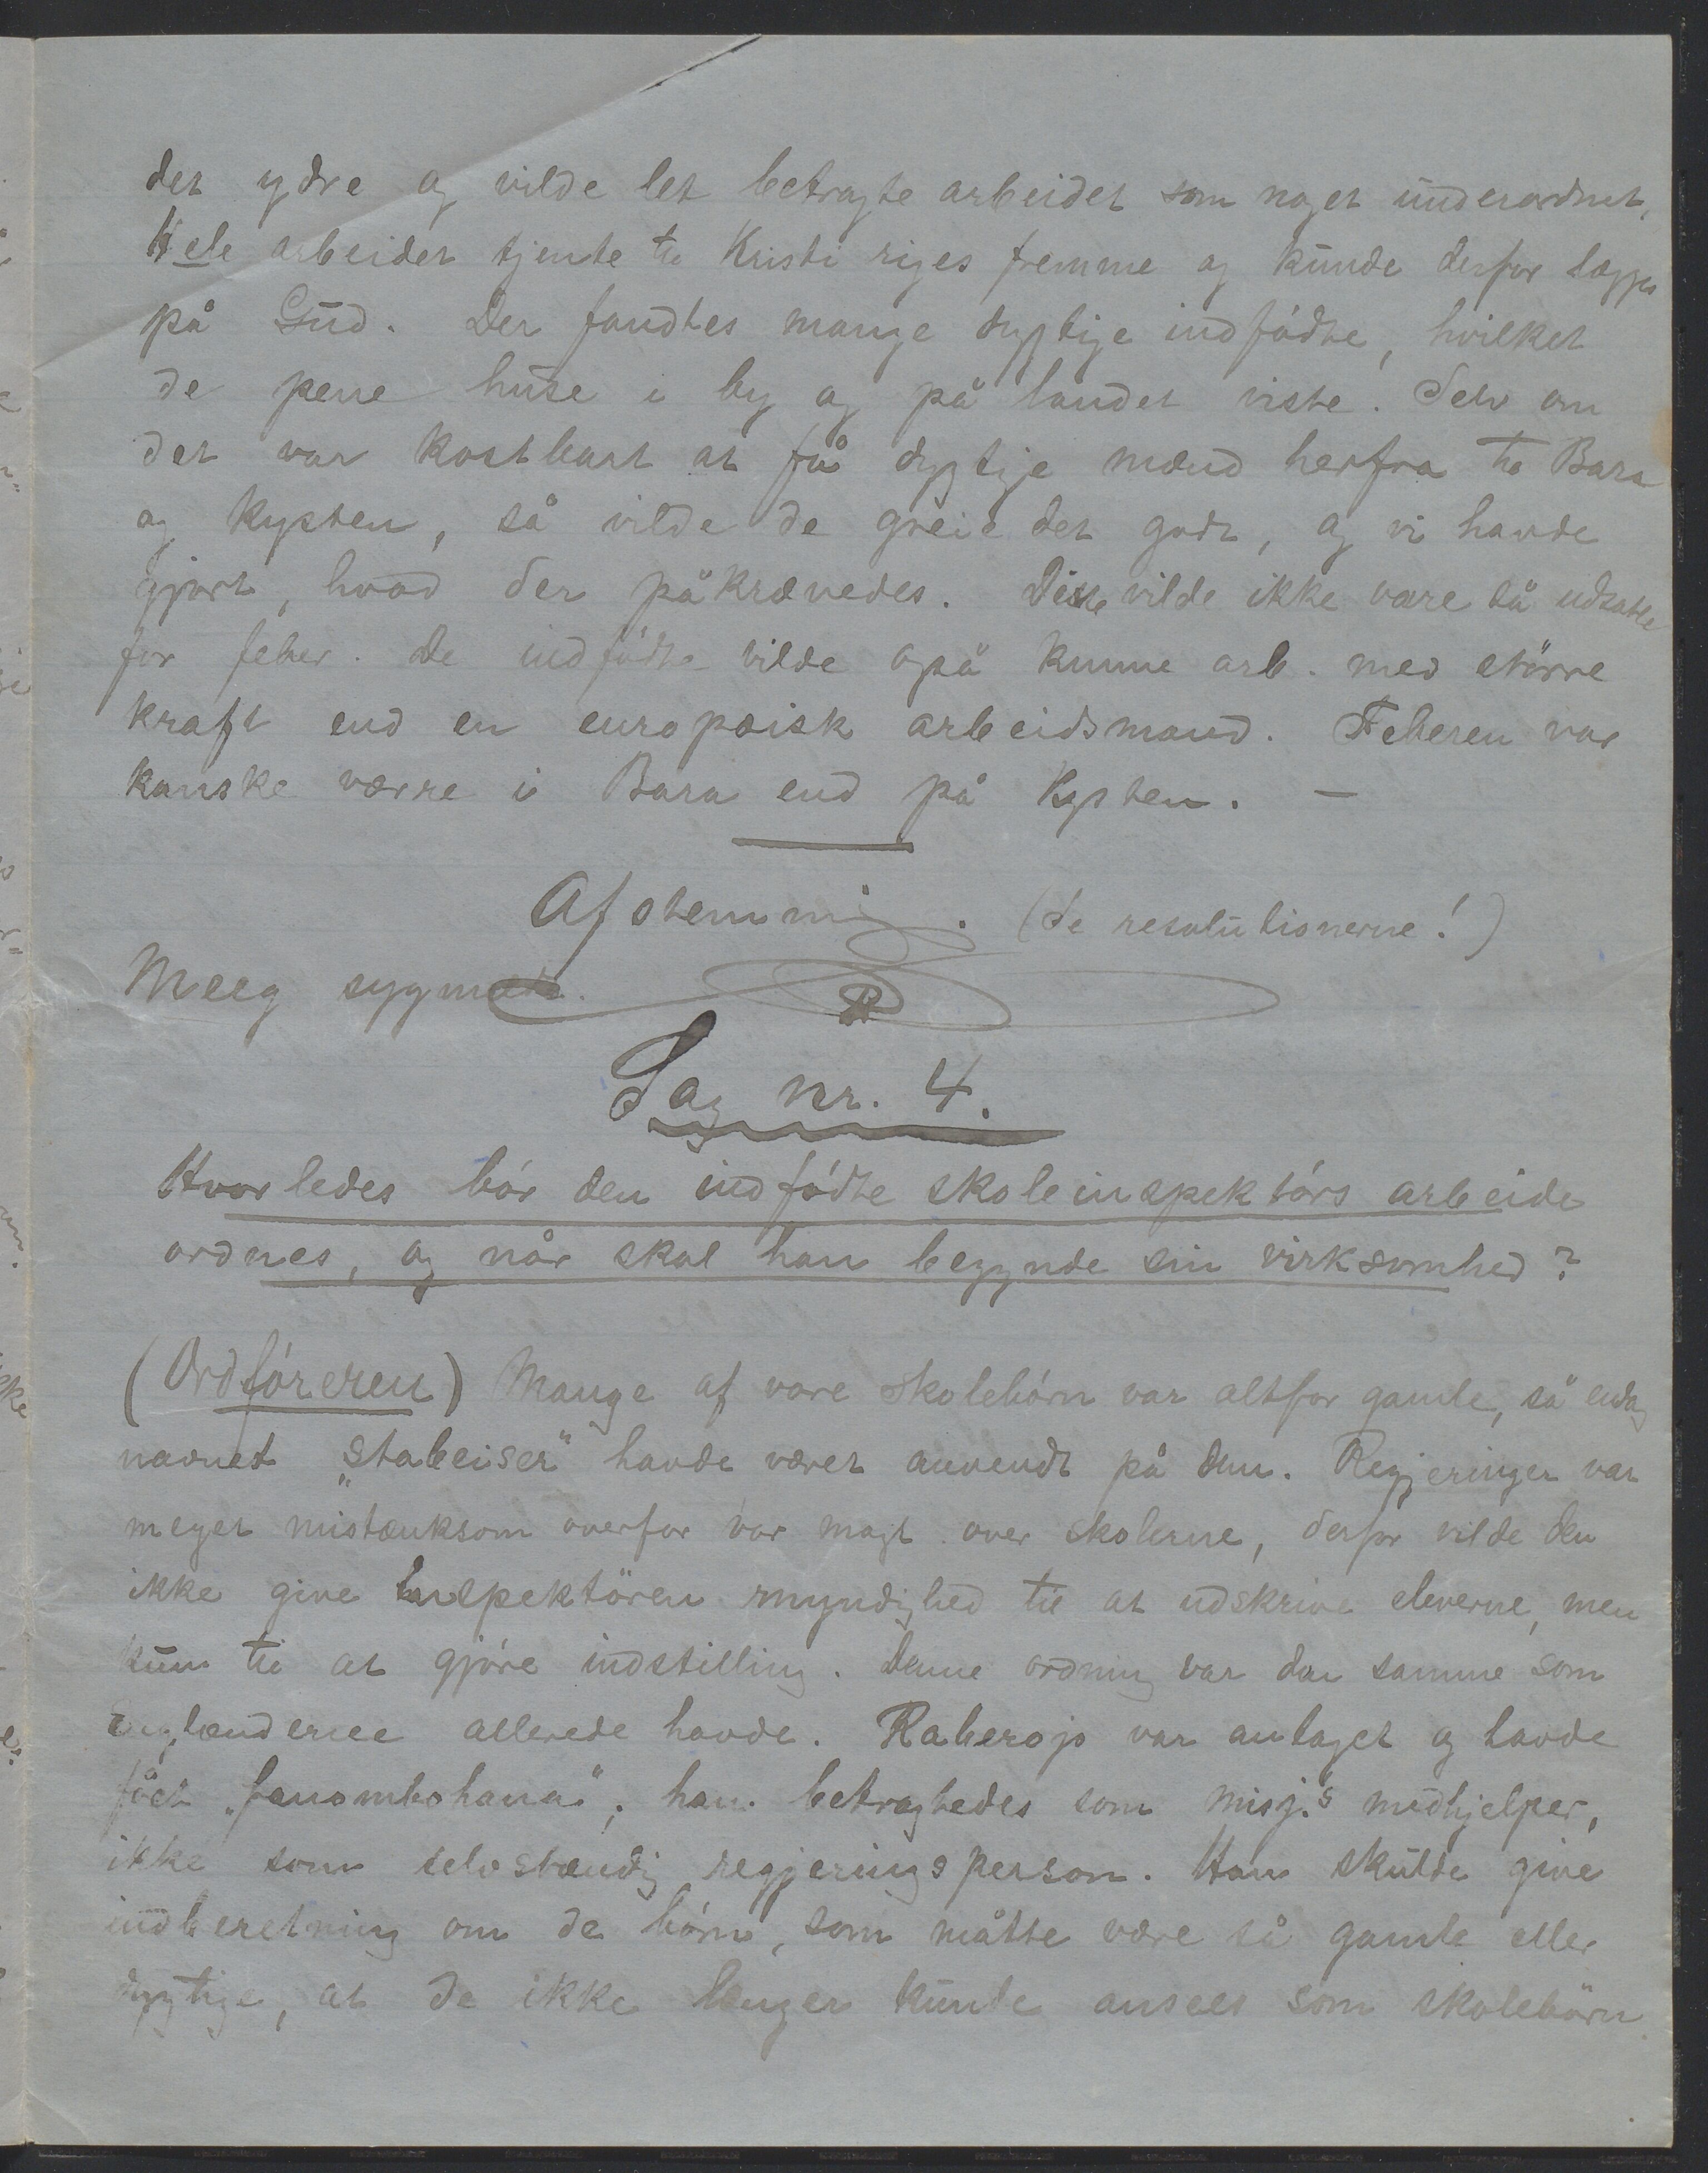 det ydre og vilde let betragte arbeidet som noget underordnet,
Hele arbeidet tjente til Kristi riges fremme og kunde derfor lægges
på Gud. Der fandtes mange dygtige indfødte, hvilket
de pene huse i by og på landet viste. Selv om
det var kostbart at få dygtige mænd herfra til Bara
og kysten, så vilde de greie det godt, og vi havde
gjort, hvad der påkrævedes. Disse vilde ikke være så udsatte
for feber. De indfødte vilde også kunne arb. med større
kraft end en europæisk arbeidsmand. Feberen var
kanske værre i Bara end på Kysten. —
Afstemning. (Se resolutionerne!)
Meeg sygmeldt.
Sag nr. 4.
Hvorledes bór den indfódte skoleinspektórs arbeide
ordnes, og når skal han begynde sin virksomhed?
(Ordfóreren) Mange af vore skolebórn var altfor gamle, så endog
navnet „stabeiser" havde været anvendt på dem. Regjeringen var
meget mistænksom overfor vor magt over skolerne, derfor vilde den
ikke give Inspektören myndighed til at udskrive eleverne, men
kun til at gjóre indstilling. Denne ordning var den samme som
Englænderne allerede havde. Raberojo var antaget og havde
fået „fanombohana", han betragtedes som misj.'s medhjelper,
ikke som selvstændig regjeringsperson. Han skulde give
indberetning om de bórn, som måtte være så gamle eller
dygtige, at de ikke længer kunde ansees som skolebörn.